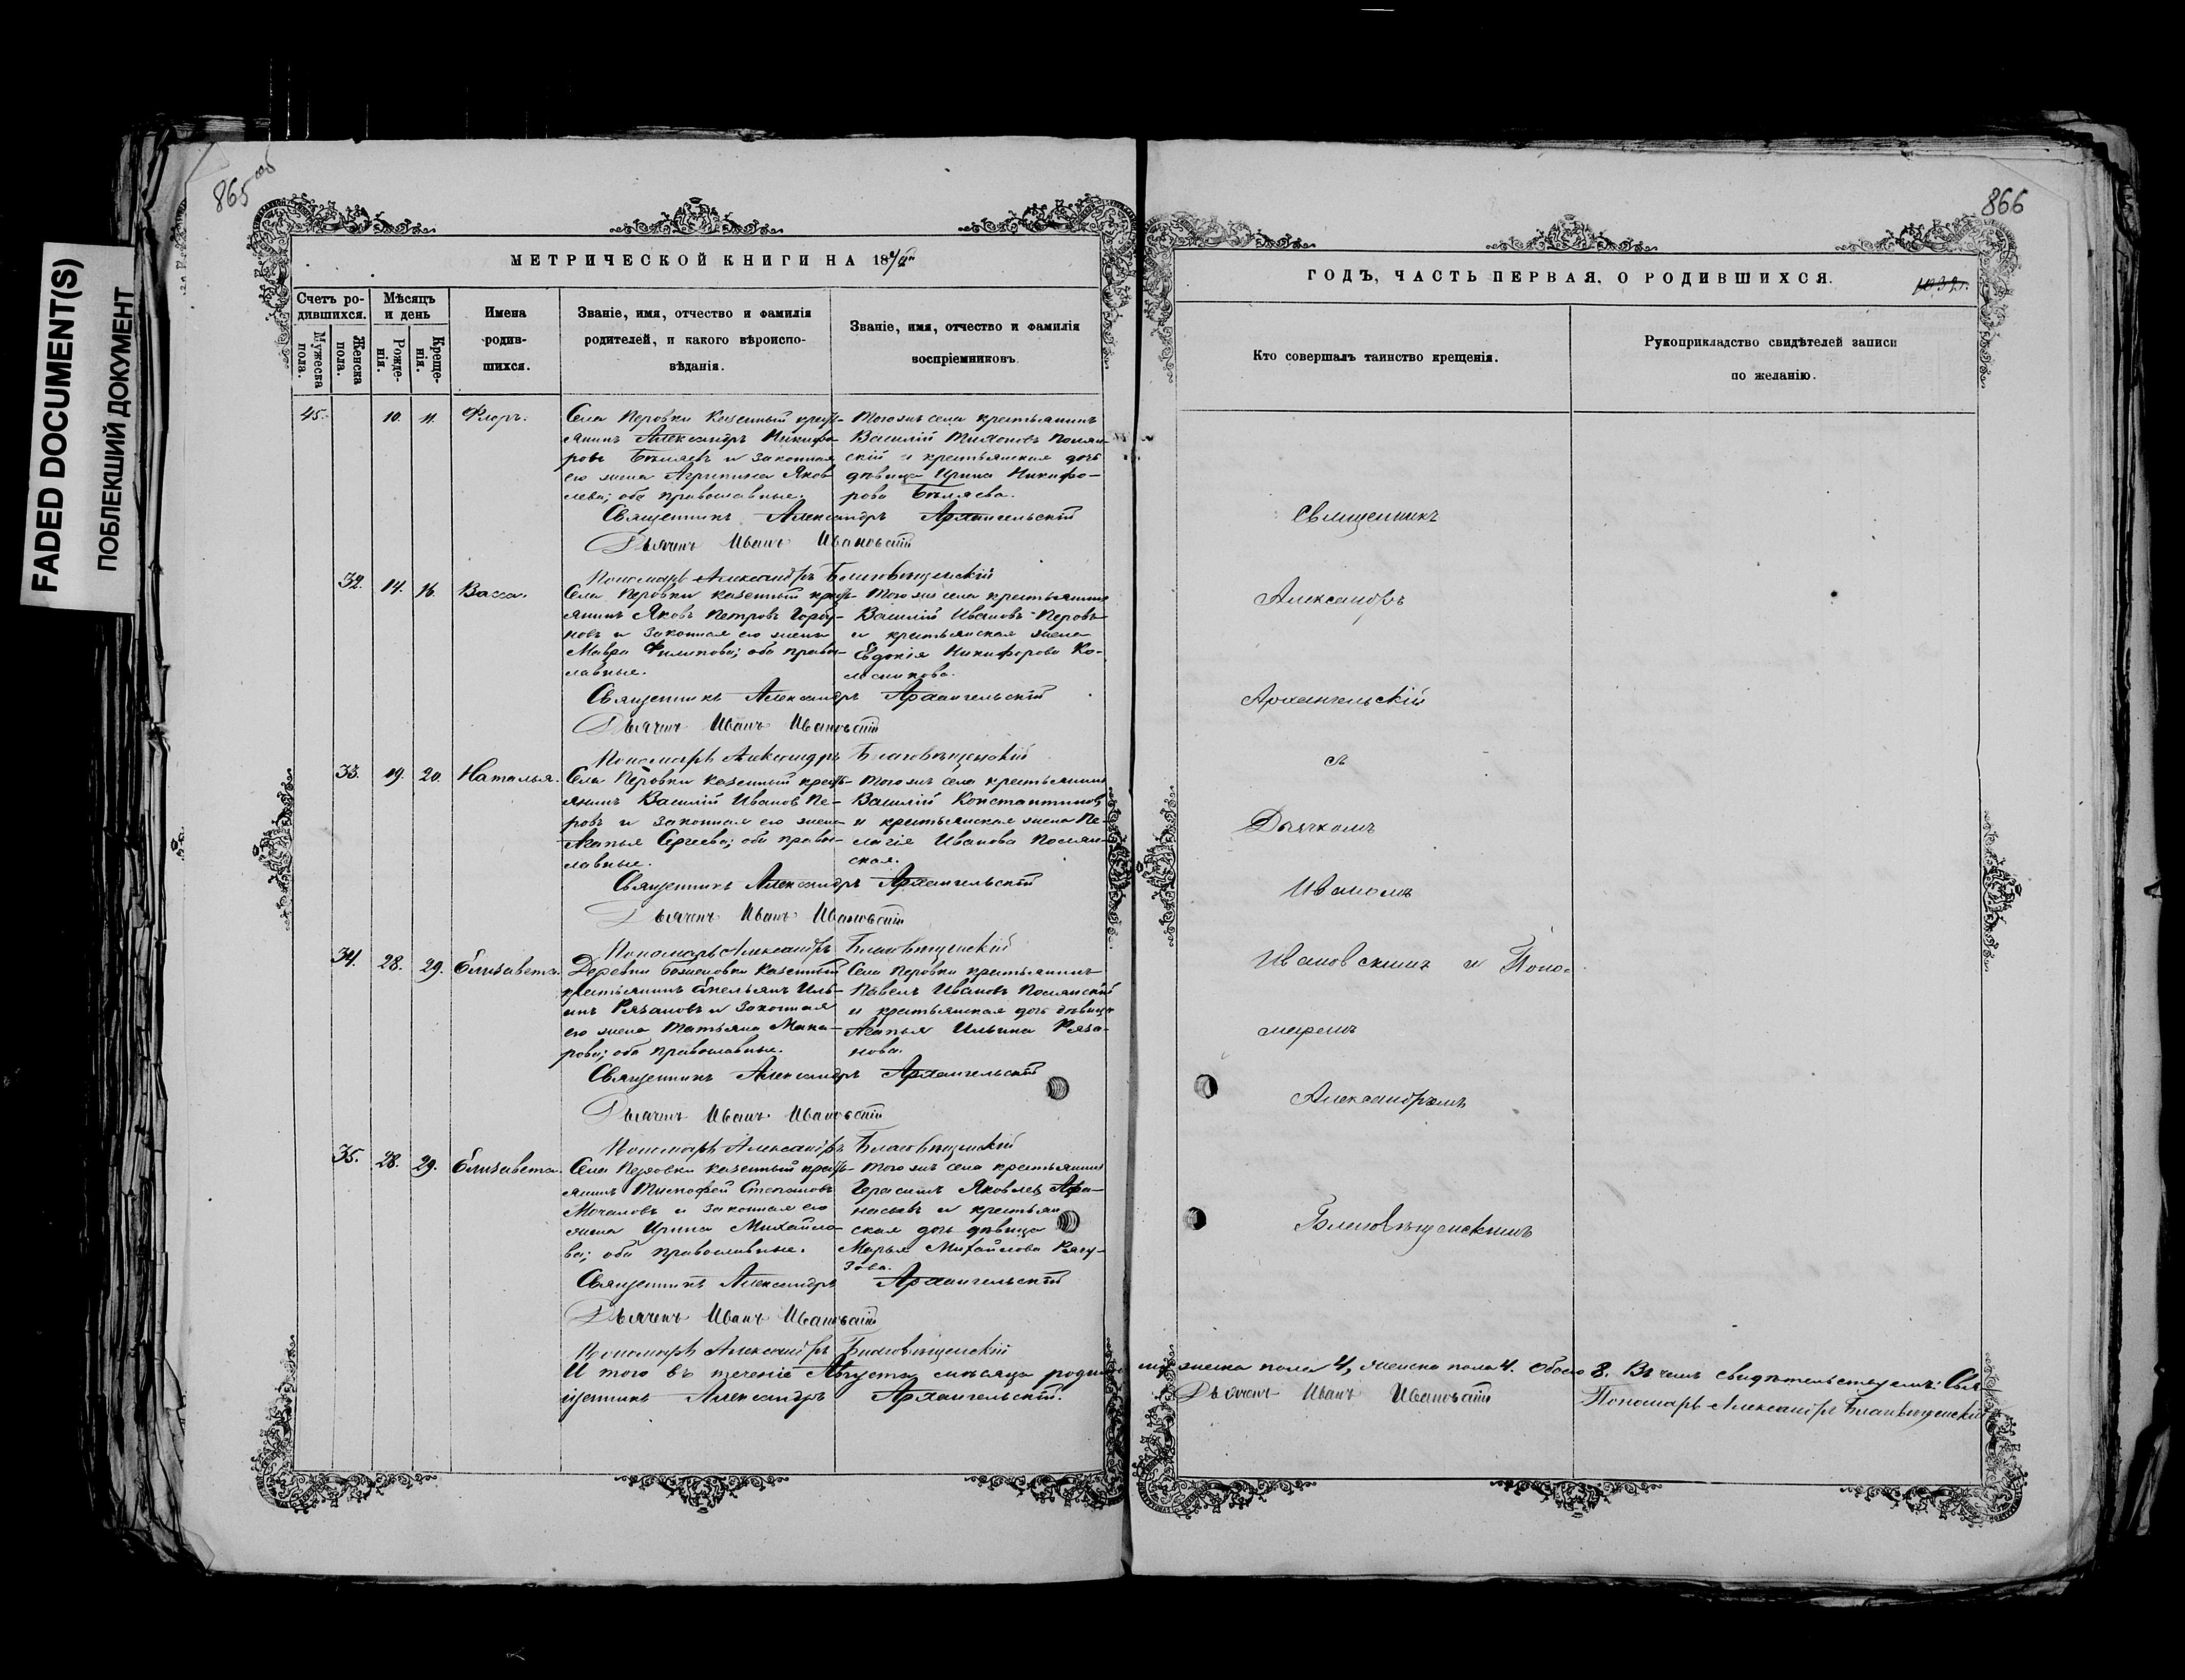 FADED DOCUMENT(S)
ПОБЛЕКШИЙ ДОКУМЕНТ
865 об
МЕТРИЧЕСКОЙ КНИГИ НА 18
Счетъ ро-
дившихся.
Мужеска
пола.
Женска
пола.
Мѣсяцъ
и день
Рожде-
нія.
Креще-
нія.
Имена
родив-
шихся.
Званіе, имя, отчество и фамилія
родителей, и какого вѣроиспо-
вѣданія.
Званіе, имя, отчество и фамилія
воспріемниковъ.
45. 10. 11. Флоръ.
Села Перовки казенный кресть-
янинъ Александръ Никифо-
ровъ Бѣляевъ и законная
его жена Агрипина Яков-
лева; оба православные.
Тогожъ села крестьянинъ
Василій Тихоновъ Полян-
скій и крестьянская дочь
дѣвица Ирина Никифо-
рова Бѣляева.
Священникъ Александръ Архангельскій
Дьячекъ Иванъ Ивановскій
Пономарь Александръ Благовѣщенскій
32. 14. 16. Васса.
Села Перовки казенный кресть-
янинъ Яковъ Петровъ Горбу-
новъ и законная его жена
Мавра Филипова; оба право-
славные.
Тогожъ села крестьянинъ
Василій Ивановъ Перовъ
и крестьянская жена
Евдокія Никифорова Ко-
лесникова.
Священникъ Александръ Архангельскій
Дьячекъ Иванъ Ивановскій
Пономарь Александръ Благовѣщенскій
33. 19. 20. Наталья.
Села Перовки казенный кресть-
янинъ Василій Ивановъ Пе-
ровъ и законная его жена
Агапья Сергеева; оба право-
славные.
Тогожъ села крестьянинъ
Василій Константиновъ
и крестьянская жена Пе-
лагія Иванова Полян-
ская.
Священникъ Александръ Архангельскій
Дьячекъ Иванъ Ивановскій
Пономарь Александръ Благовѣщенскій
34. 28. 29. Елизавета.
Деревни казенный
крестьянинъ Емельянъ Иль-
инъ Рязановъ и законная
его жена Татьяна Мака-
рова; оба православные.
Села Перовки крестьянинъ
Павелъ Ивановъ Полянскій
и крестьянская дочь дѣвица
Агапья Ильина Ряза-
нова.
Священникъ Александръ Архангельскій
Дьячекъ Иванъ Ивановскій
Пономарь Александръ Благовѣщенскій
35. 28. 29. Елизавета.
Села Перовки казенный кресть-
янинъ Тимофей Степановъ
Мочаловъ и законная его
жена Ирина Михайло-
ва; оба православные.
Тогожъ села крестьянинъ
Герасимъ Яковлевъ Афа-
насьевъ и крестьян
ская дочь дѣвица
Марья Михайлова
Священникъ Александръ Архангельскій
Дьячекъ Иванъ Ивановскій
Пономарь Александръ Благовѣщенскій
И того въ теченіе Августа мѣсяца родил
щенникъ Александръ Архангельскій.
866
ГОДЪ, ЧАСТЬ ПЕРВАЯ, О РОДИВШИХСЯ.
Кто совершалъ таинство крещенія.
Рукоприкладство свидѣтелей записи
по желанію.
Священникъ
Александръ
Архангельскій
съ
Дьячкомъ
Иваномъ
Ивановскимъ и Поно-
маремъ
Александромъ
Благовѣщенскимъ
мужеска пола 4, женска пола 4. Обоего 8. Въ чемъ свидѣтельствуемъ: Свя-
Дьячекъ Иванъ Ивановскій
Пономарь Александръ Благовѣщенскій